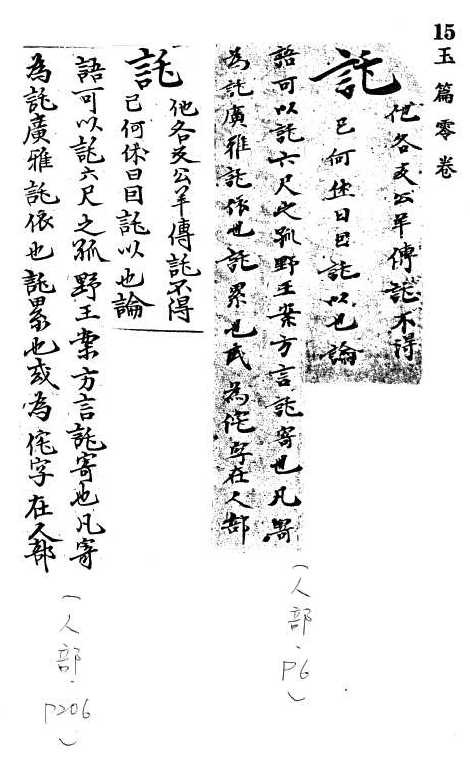 15玉篇零卷
託
他各反公羊傳託不得
已何休曰因託以也論
語可以託六尺之孤野王案方言託寄也凡寄
為託廣雅託依也託累也或為侂字在人部
(人部·P6)
託
他各反公羊傳託不得
已何休曰因託以也論
語可以託六尺之孤野王案方言託寄也凡寄
為託廣雅託依也託累也或為侂字在人部
(人部·P206)